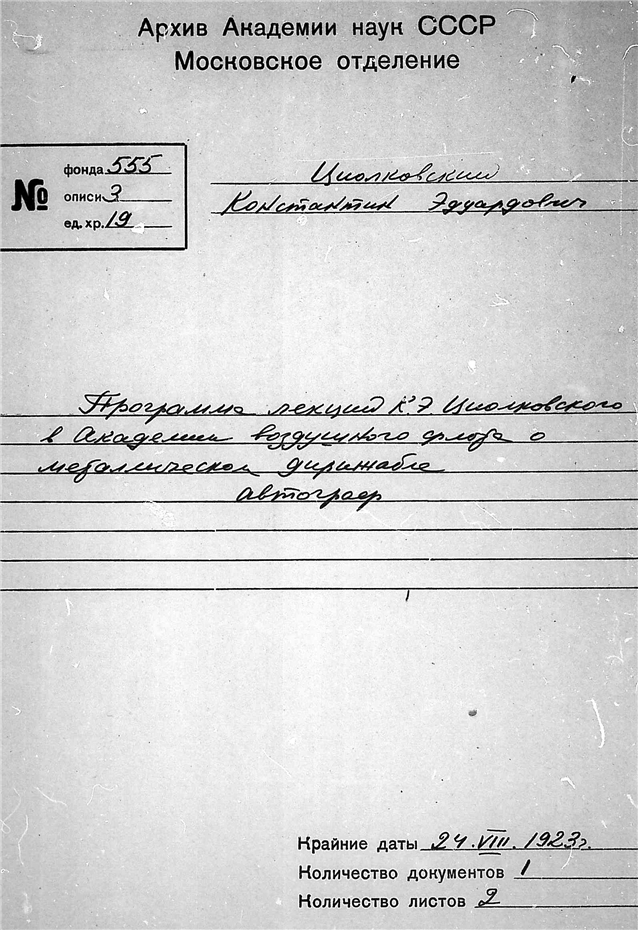 Архив Академии наук СССР
Московское отделение
№
фонда 555
описи 3
ед. хр. 19
Циолковский
Константин Эдуардович
Программа лекций К.Э Циолковского
в Академии воздушного флота о
металлическом дирижабле
автограф
Крайние даты 24.VIII.1923г.
Количество документов 1
Количество листов 2